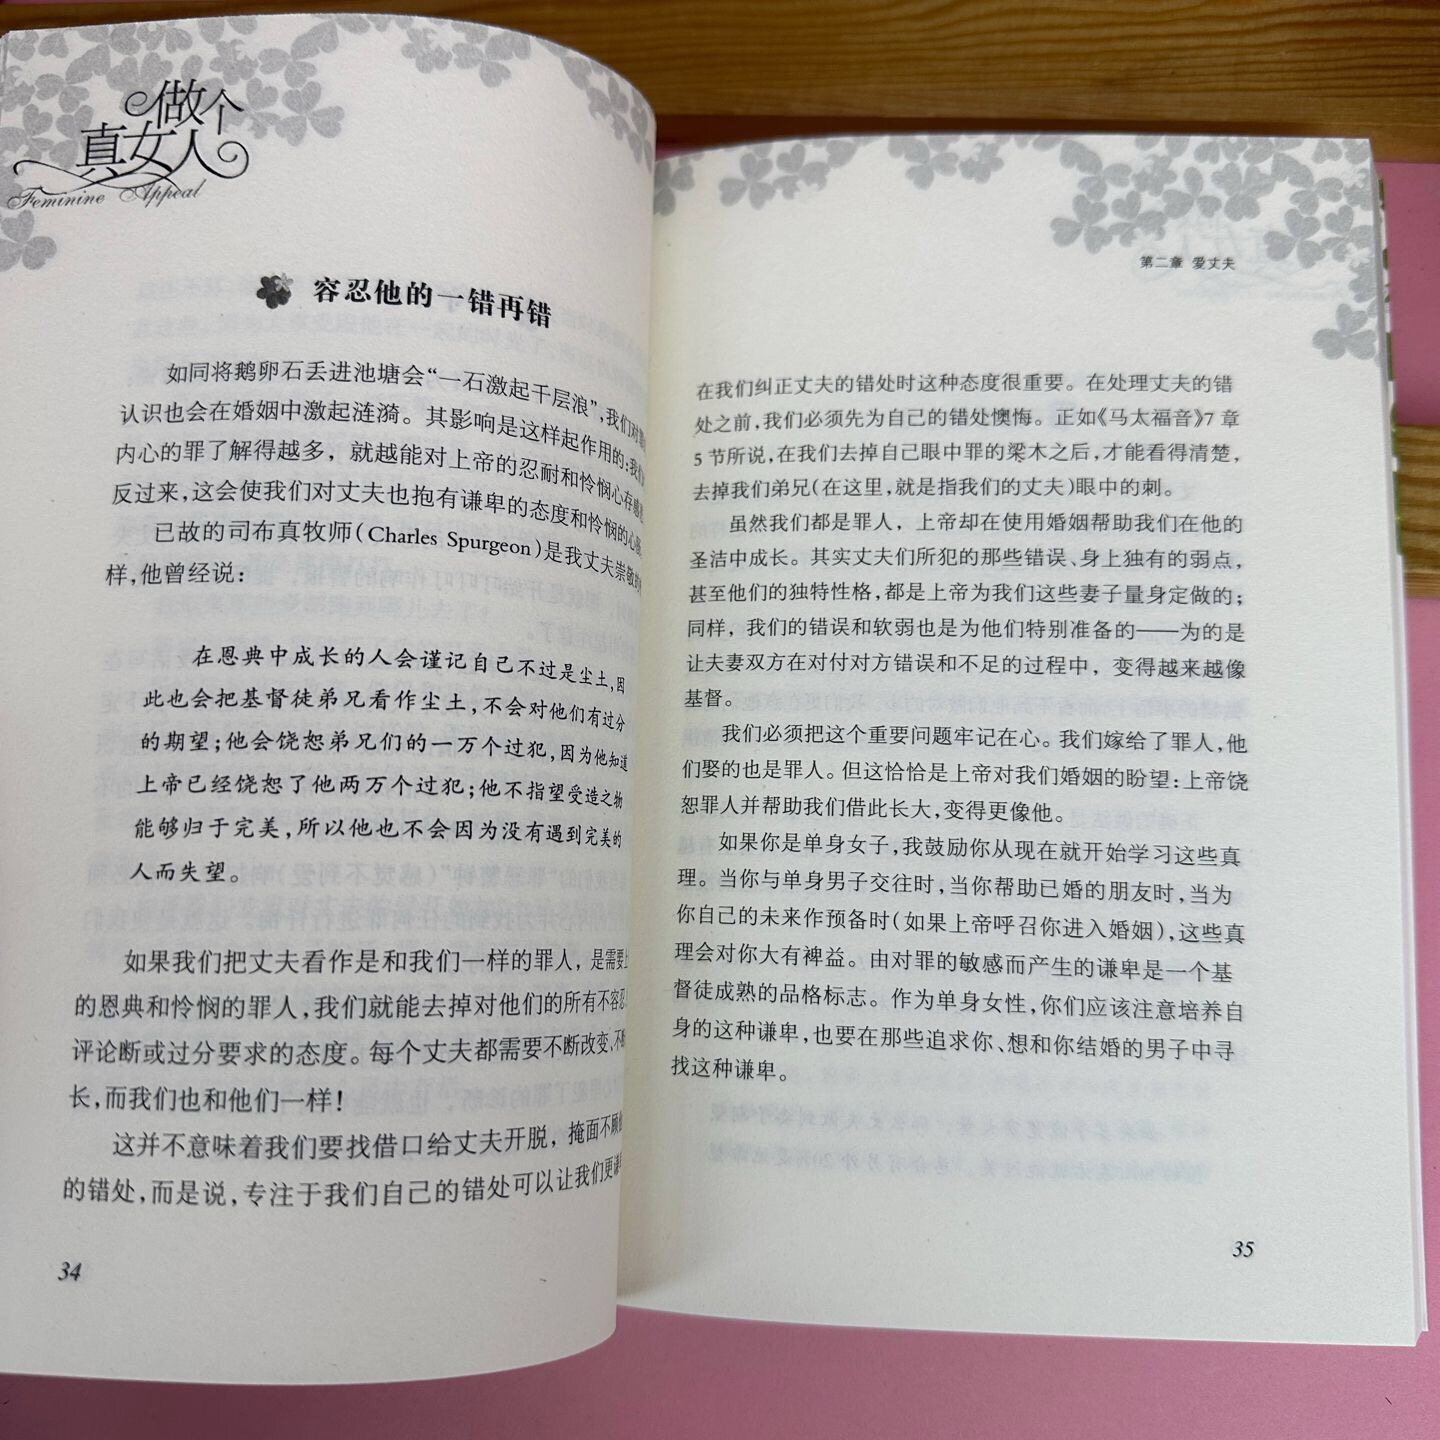 做个
真女人
Feminine Appeal
容忍他的一错再错
如同将鹅卵石丢进池塘会“一石激起千层浪”，我们对
认识也会在婚姻中激起涟漪。其影响是这样起作用的：我
内心的罪了解得越多，就越能对上帝的忍耐和怜悯心存感
反过来，这会使我们对丈夫也抱有谦卑的态度和怜悯的心
已故的司布真牧师（Charles Spurgeon）是我丈夫崇敬
样，他曾经说：
在恩典中成长的人会谨记自己不过是尘土，因
此也会把基督徒弟兄看作尘土，不会对他们有过分
的期望；他会饶恕弟兄们的一万个过犯，因为他知道
上帝已经饶恕了他两万个过犯；他不指望受造之物
能够归于完美，所以他也不会因为没有遇到完美的
人而失望。
如果我们把丈夫看作是和我们一样的罪人，是需要
的恩典和怜悯的罪人，我们就能去掉对他们的所有不容忍
评论断或过分要求的态度。每个丈夫都需要不断改变、不
长，而我们也和他们一样！
这并不意味着我们要找借口给丈夫开脱，掩面不顾
的错处，而是说，专注于我们自己的错处可以让我们更
34
第二章 爱丈夫
在我们纠正丈夫的错处时这种态度很重要。在处理丈夫的错
处之前，我们必须先为自己的错处懊悔。正如《马太福音》7 章
5 节所说，在我们去掉自己眼中罪的梁木之后，才能看得清楚，
去掉我们弟兄（在这里，就是指我们的丈夫）眼中的刺。
虽然我们都是罪人，上帝却在使用婚姻帮助我们在他的
圣洁中成长。其实丈夫们所犯的那些错误、身上独有的弱点，
甚至他们的独特性格，都是上帝为我们这些妻子量身定做的；
同样，我们的错误和软弱也是为他们特别准备的——为的是
让夫妻双方在对付对方错误和不足的过程中，变得越来越像
基督。
我们必须把这个重要问题牢记在心。我们嫁给了罪人，他
们娶的也是罪人。但这恰恰是上帝对我们婚姻的盼望：上帝饶
恕罪人并帮助我们借此长大，变得更像他。
如果你是单身女子，我鼓励你从现在就开始学习这些真
理。当你与单身男子交往时，当你帮助已婚的朋友时，当为
你自己的未来作预备时（如果上帝呼召你进入婚姻），这些真
理会对你大有裨益。由对罪的敏感而产生的谦卑是一个基
督徒成熟的品格标志。作为单身女性，你们应该注意培养自
身的这种谦卑，也要在那些追求你、想和你结婚的男子中寻
找这种谦卑。
35